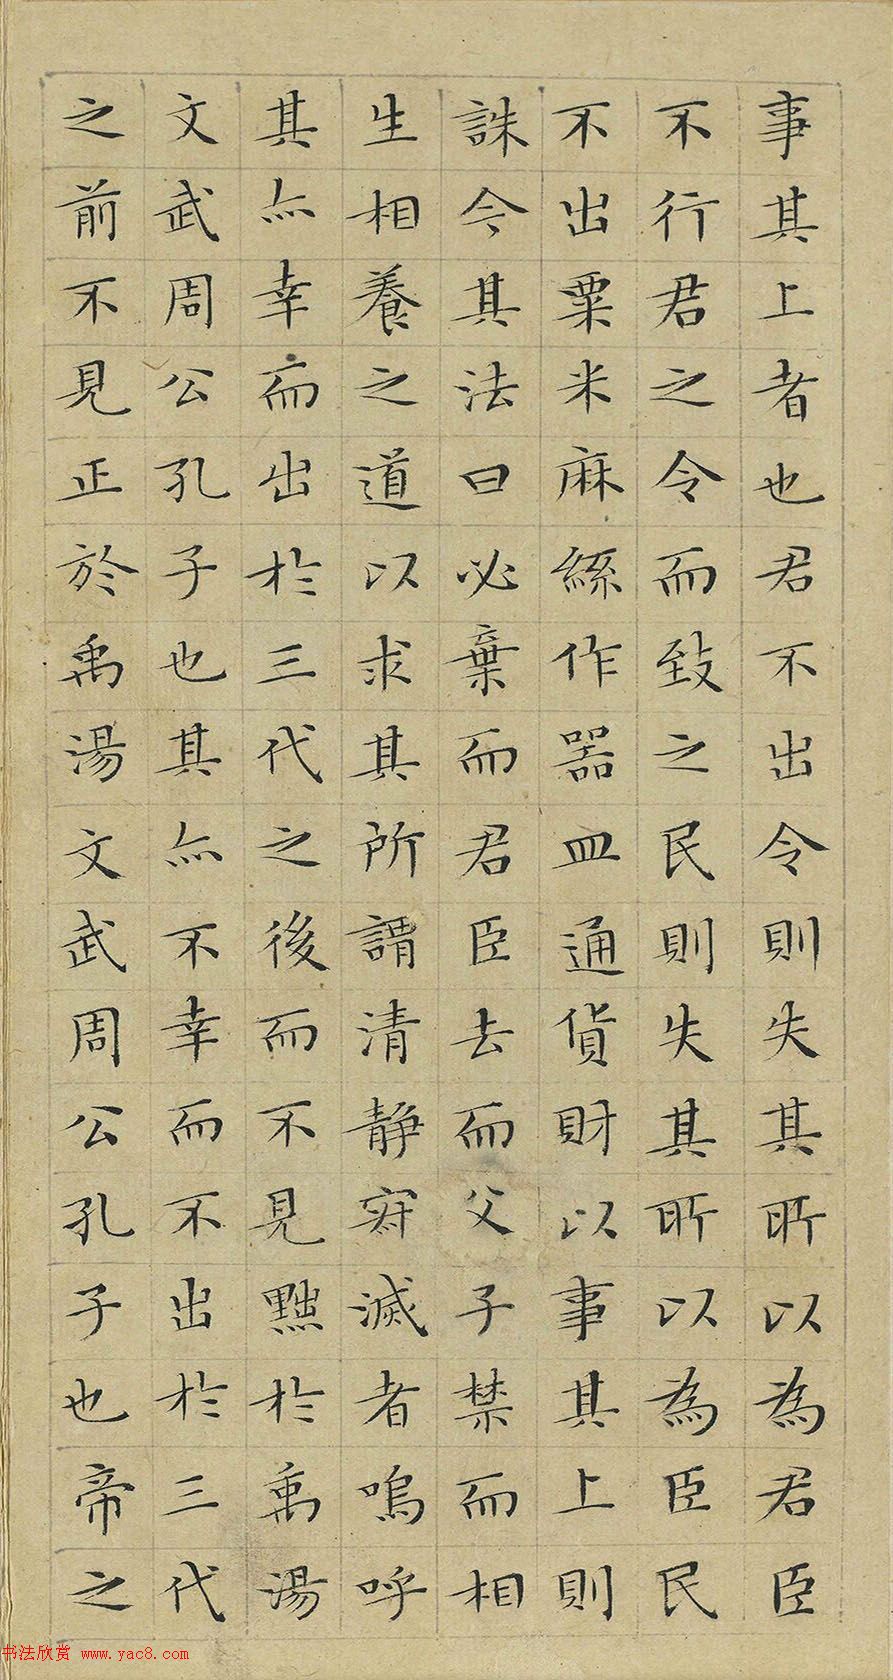 事其上者也君不出令則失其所以為君臣
不行君之令而致之民則失其所以為臣民
不出粟米麻絲作器皿通貨財以事其上則
誅今其法曰必棄而君臣去而父子禁而相
生相養之道以求其所謂清静寂滅者嗚呼
其亦幸而出於三代之後而不見黜於禹湯
文武周公孔子也其亦不幸而不出於三代
之前不見正於禹湯文武周公孔子也帝之
书法欣赏 www.yac8.com